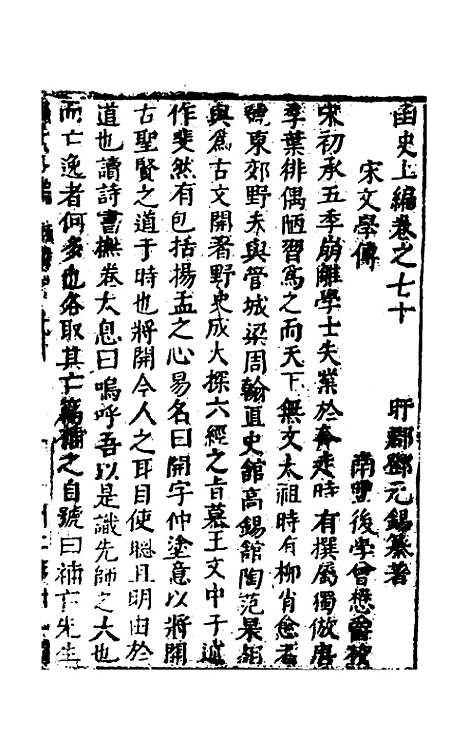 函史上編卷之七十
盱郡鄧元錫纂著
宋文學傳
南豐後學曾懋爵校
宋初承五季崩離學士失業於奔走時有撰屬獨倣唐
季葉徘偶陋習寫之而天下無文太祖時有柳肖愈者
號東郊野夫與管城梁周翰直史館高錫館陶范杲相
與爲古文開著野史成大探六經之旨慕王文中子述
作斐然有包括揚孟之心易名曰開字仲塗意以將開
古聖賢之道于時也將開今人之耳目使聰且明由於
道也讀詩書撫卷太息曰嗚呼吾以是識先師之大也
而亡逸者何多也各取其亡篇補之自號曰補亡先生